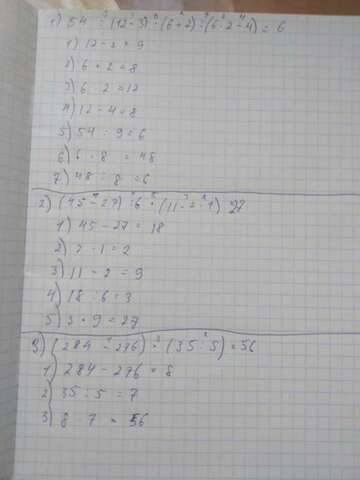 1) 54 : (12-3) · (6+2) : (6·2-4) = 6
1) 12-3 = 9
2) 6+2=8
3) 6 · 2=12
4) 12-4=8
5) 54 : 9=6
6) 6 · 8 = 48
7) 48 : 8 =6
2) (45-27) : 6 · (11-2·1) 27
1) 45-27=18
2) 2·1=2
3) 11-2=9
4) 18:6=3
5) 3·9=27
3) (284-276) · (35:5)=56
1) 284-276=8
2) 35:5=7
3) 8·7 = 56